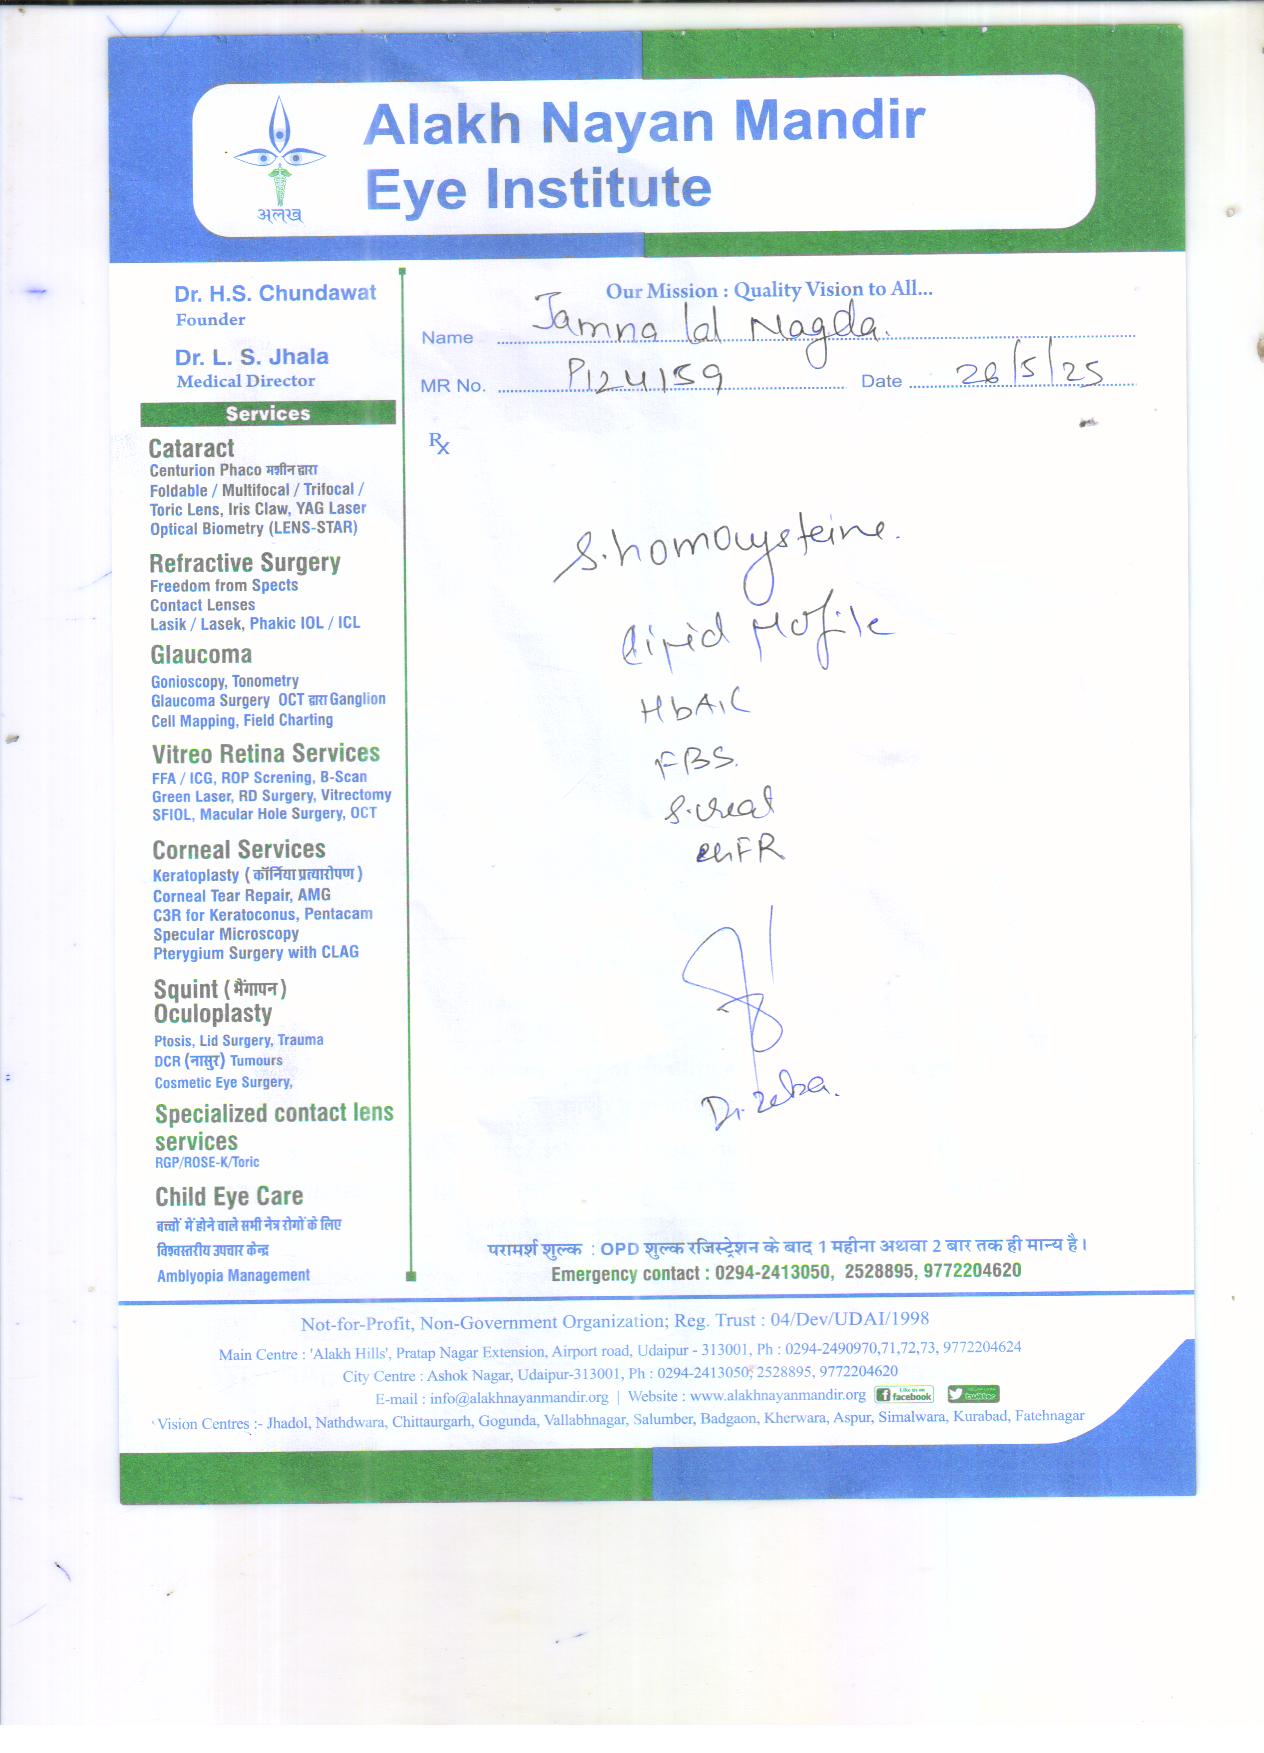 Alakh Nayan Mandir
Eye Institute
अलख
Dr. H.S. Chundawat
Founder
Dr. L. S. Jhala
Medical Director
Services
Cataract
Centurion Phaco मशीन द्वारा
Foldable / Multifocal / Trifocal /
Toric Lens, Iris Claw, YAG Laser
Optical Biometry (LENS-STAR)
Refractive Surgery
Freedom from Spects
Contact Lenses
Lasik / Lasek, Phakic IOL / ICL
Glaucoma
Gonioscopy, Tonometry
Glaucoma Surgery OCT द्वारा Ganglion
Cell Mapping, Field Charting
Vitreo Retina Services
FFA / ICG, ROP Screning, B-Scan
Green Laser, RD Surgery, Vitrectomy
SFIOL, Macular Hole Surgery, OCT
Corneal Services
Keratoplasty (कॉर्निया प्रत्यारोपण)
Corneal Tear Repair, AMG
C3R for Keratoconus, Pentacam
Specular Microscopy
Pterygium Surgery with CLAG
Squint (भैंगापन)
Oculoplasty
Ptosis, Lid Surgery, Trauma
DCR (नासुर) Tumours
Cosmetic Eye Surgery,
Specialized contact lens
services
RGP/ROSE-K/Toric
Child Eye Care
बच्चों में होने वाले सभी नेत्र रोगों के लिए
विश्वस्तरीय उपचार केन्द्र
Amblyopia Management
Our Mission : Quality Vision to All...
Name Jamna lal Nagda.
MR No. P124159 Date 26/5/25
Rx
S.homocysteine.
Lipid Profile
HbA1C
FBS.
S.Urea
Dr. Zeba.
परामर्श शुल्क : OPD शुल्क रजिस्ट्रेशन के बाद 1 महीना अथवा 2 बार तक ही मान्य है।
Emergency contact : 0294-2413050, 2528895, 9772204620
Not-for-Profit, Non-Government Organization; Reg. Trust : 04/Dev/UDAI/1998
Main Centre : 'Alakh Hills', Pratap Nagar Extension, Airport road, Udaipur - 313001, Ph : 0294-2490970,71,72,73, 9772204624
City Centre : Ashok Nagar, Udaipur-313001, Ph : 0294-2413050, 2528895, 9772204620
E-mail : info@alakhnayanmandir.org | Website : www.alakhnayanmandir.org Like us on facebook
Vision Centres :- Jhadol, Nathdwara, Chittaurgarh, Gogunda, Vallabhnagar, Salumber, Badgaon, Kherwara, Aspur, Simalwara, Kurabad, Fatehnagar